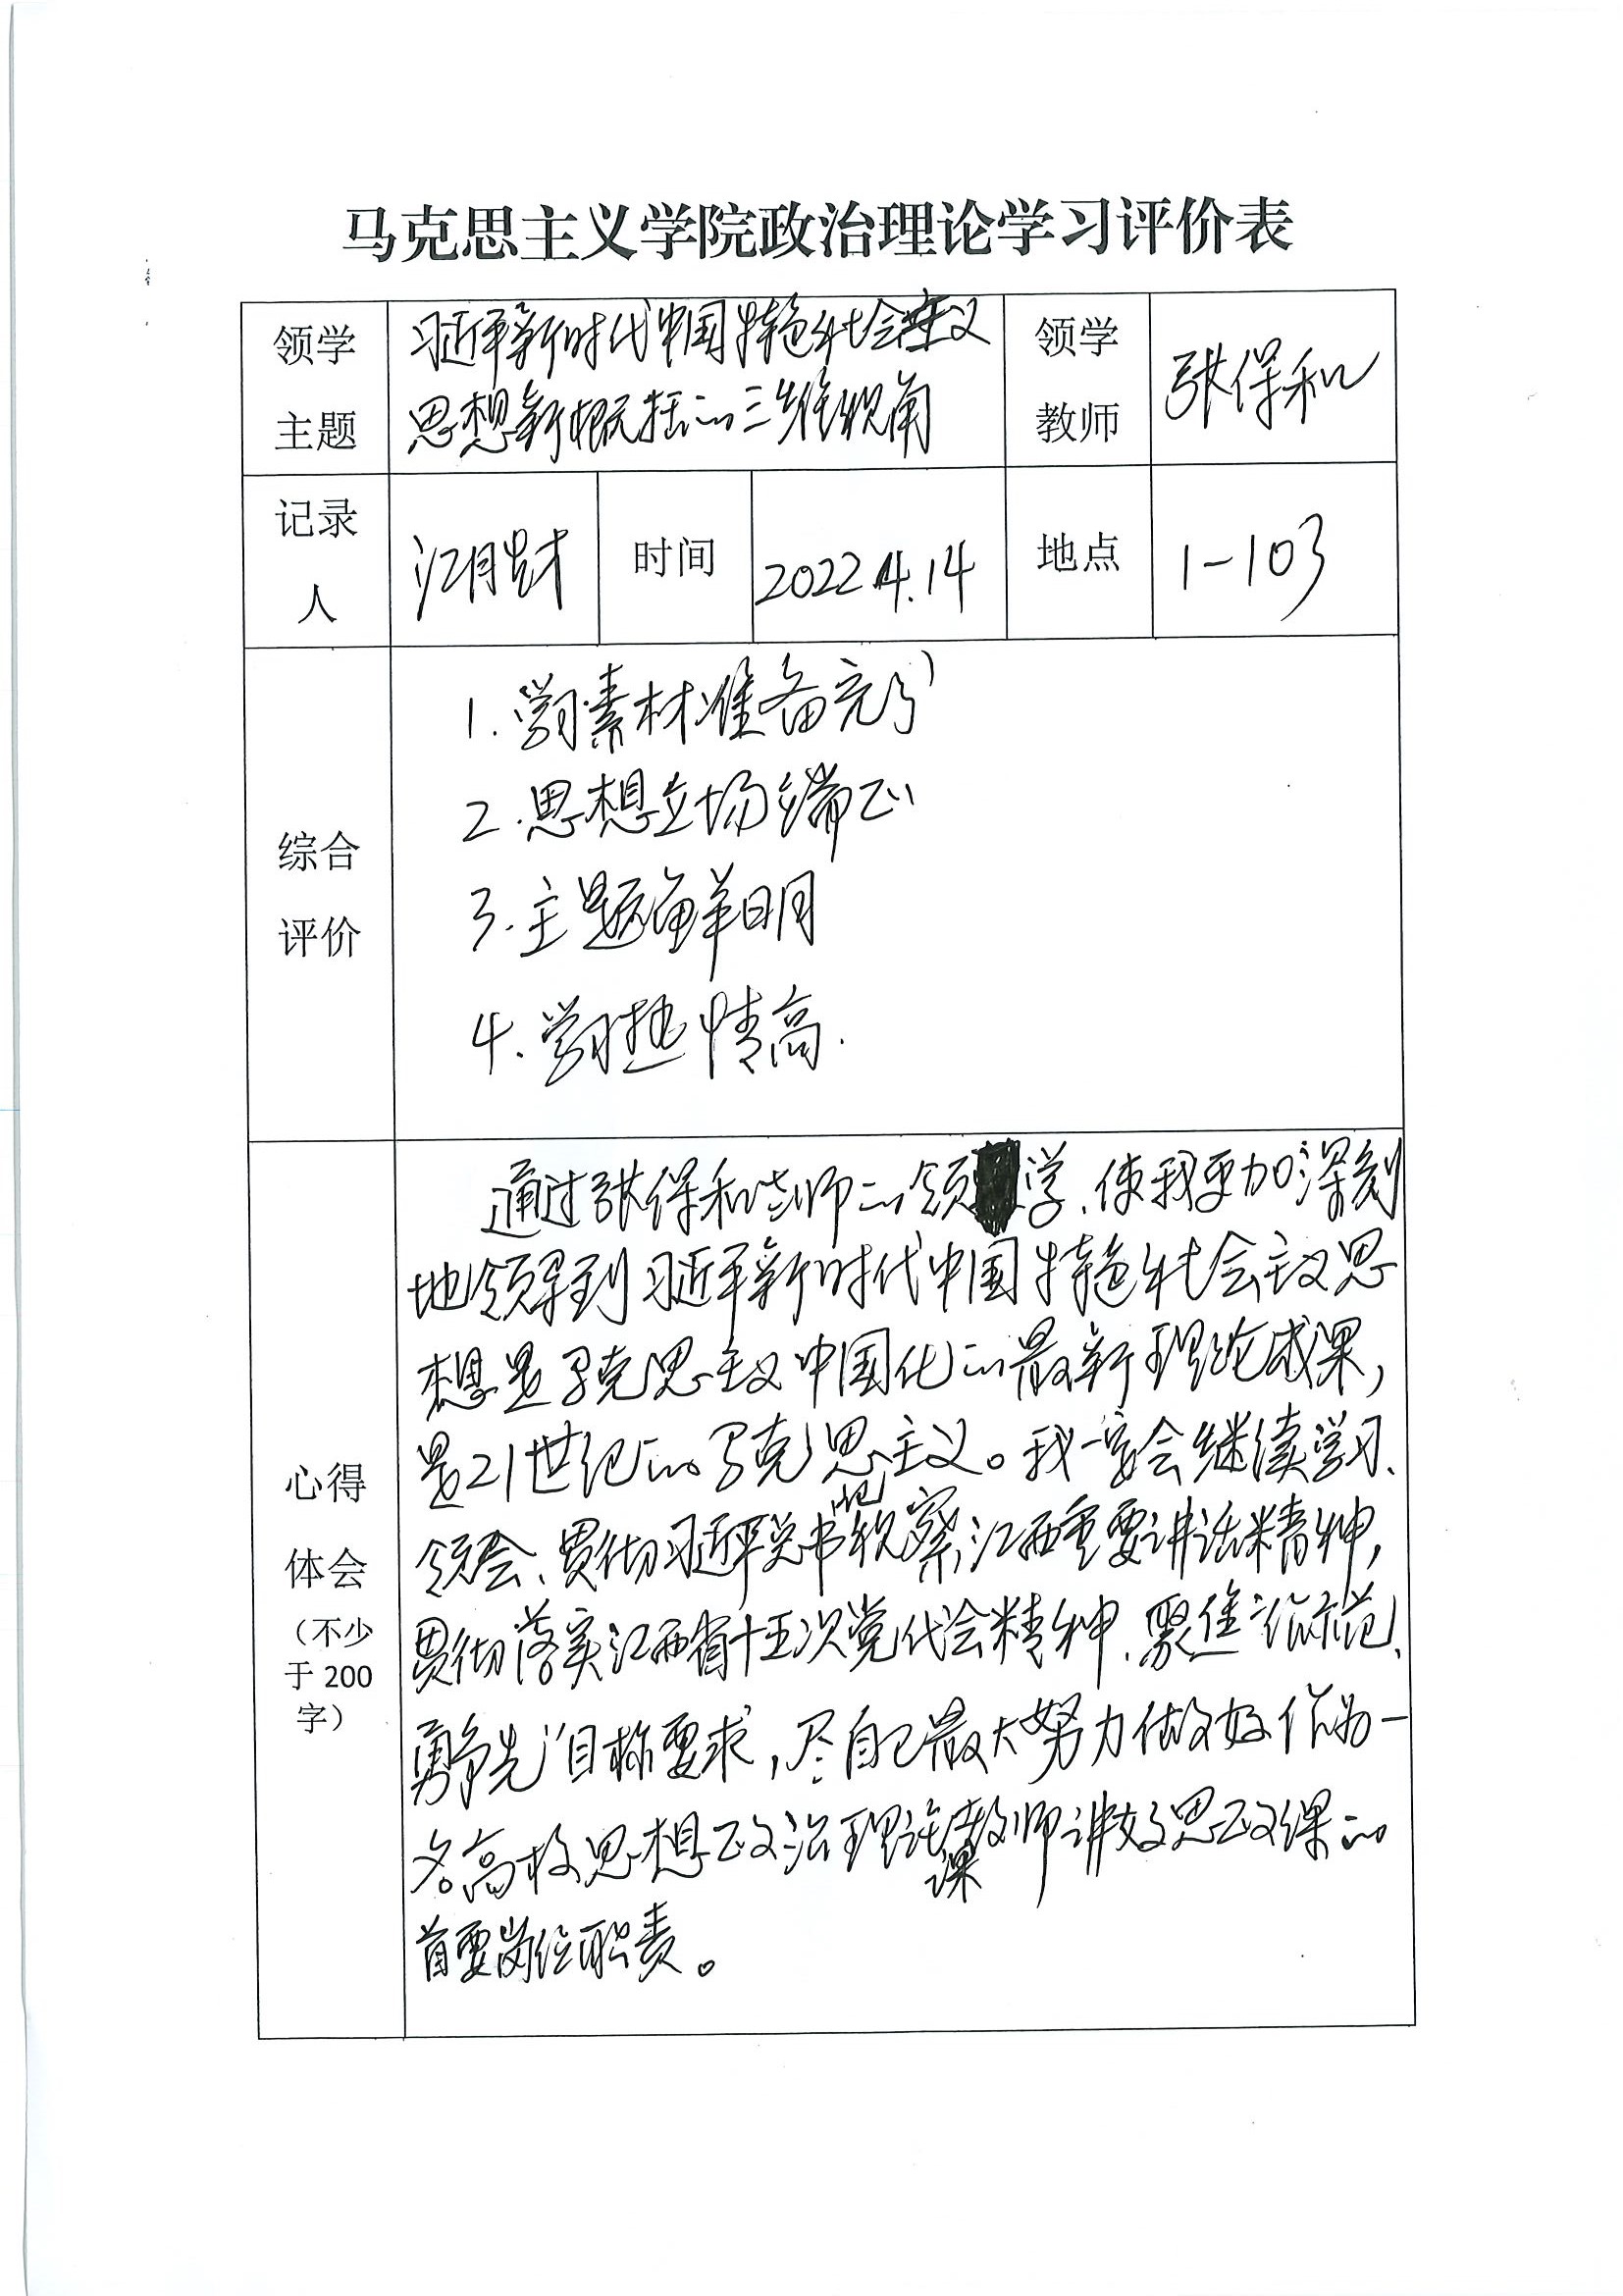 马克思主义学院政治理论学习评价表
领学
主题
习近平新时代中国特色社会主义
思想新概括的三维视角
领学
教师
张保和
记录
人
江月
时间
2022.4.14
地点
1-103
综合
评价
1.学习素材准备充分
2.思想立场端正
3.主题鲜明
4.学习热情高.
心得
体会
（不少
于200
字）
通过张保和老师的领学、使我更加深刻
地领导到习近平新时代中国特色社会主义思
想是马克思主义中国化的最新理论成果，
是21世纪的马克思主义。我一定会继续学习、
领会、贯彻习近平总书记视察江西重要讲话精神，
贯彻落实江西省十五次党代会精神、聚焦“作示范、
勇争先”目标要求，尽自己最大努力做好作为一
名高校思想政治理论课教师讲好思政课的
首要岗位职责。